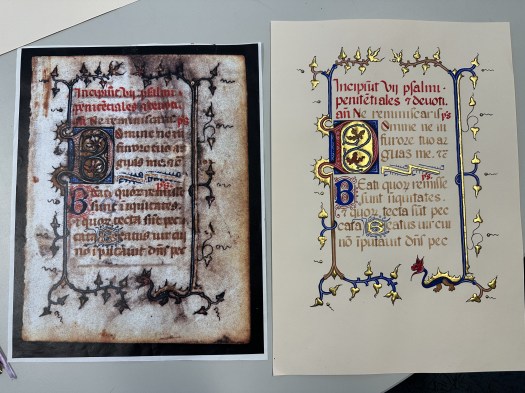 Incipiūt vij psalmi
penitētiales & devoti.
añ Ne reminiscaris ps
Domine ne in
furore tuo ar
guas me. &c
ps
Beati quor remisse
sunt iniquitates.
& quor tecta sūt pec
cata Beatus vir cui
nō iputavit dñs pec
Incipiūt vij psalmi
penitētiales & devoti.
añ Ne reminiscaris ps
Domine ne in
furore tuo ar
guas me. &c
ps
Beati quor remisse
sunt iniquitates.
& quor tecta sūt pec
cata Beatus vir cui
nō iputavit dñs pec